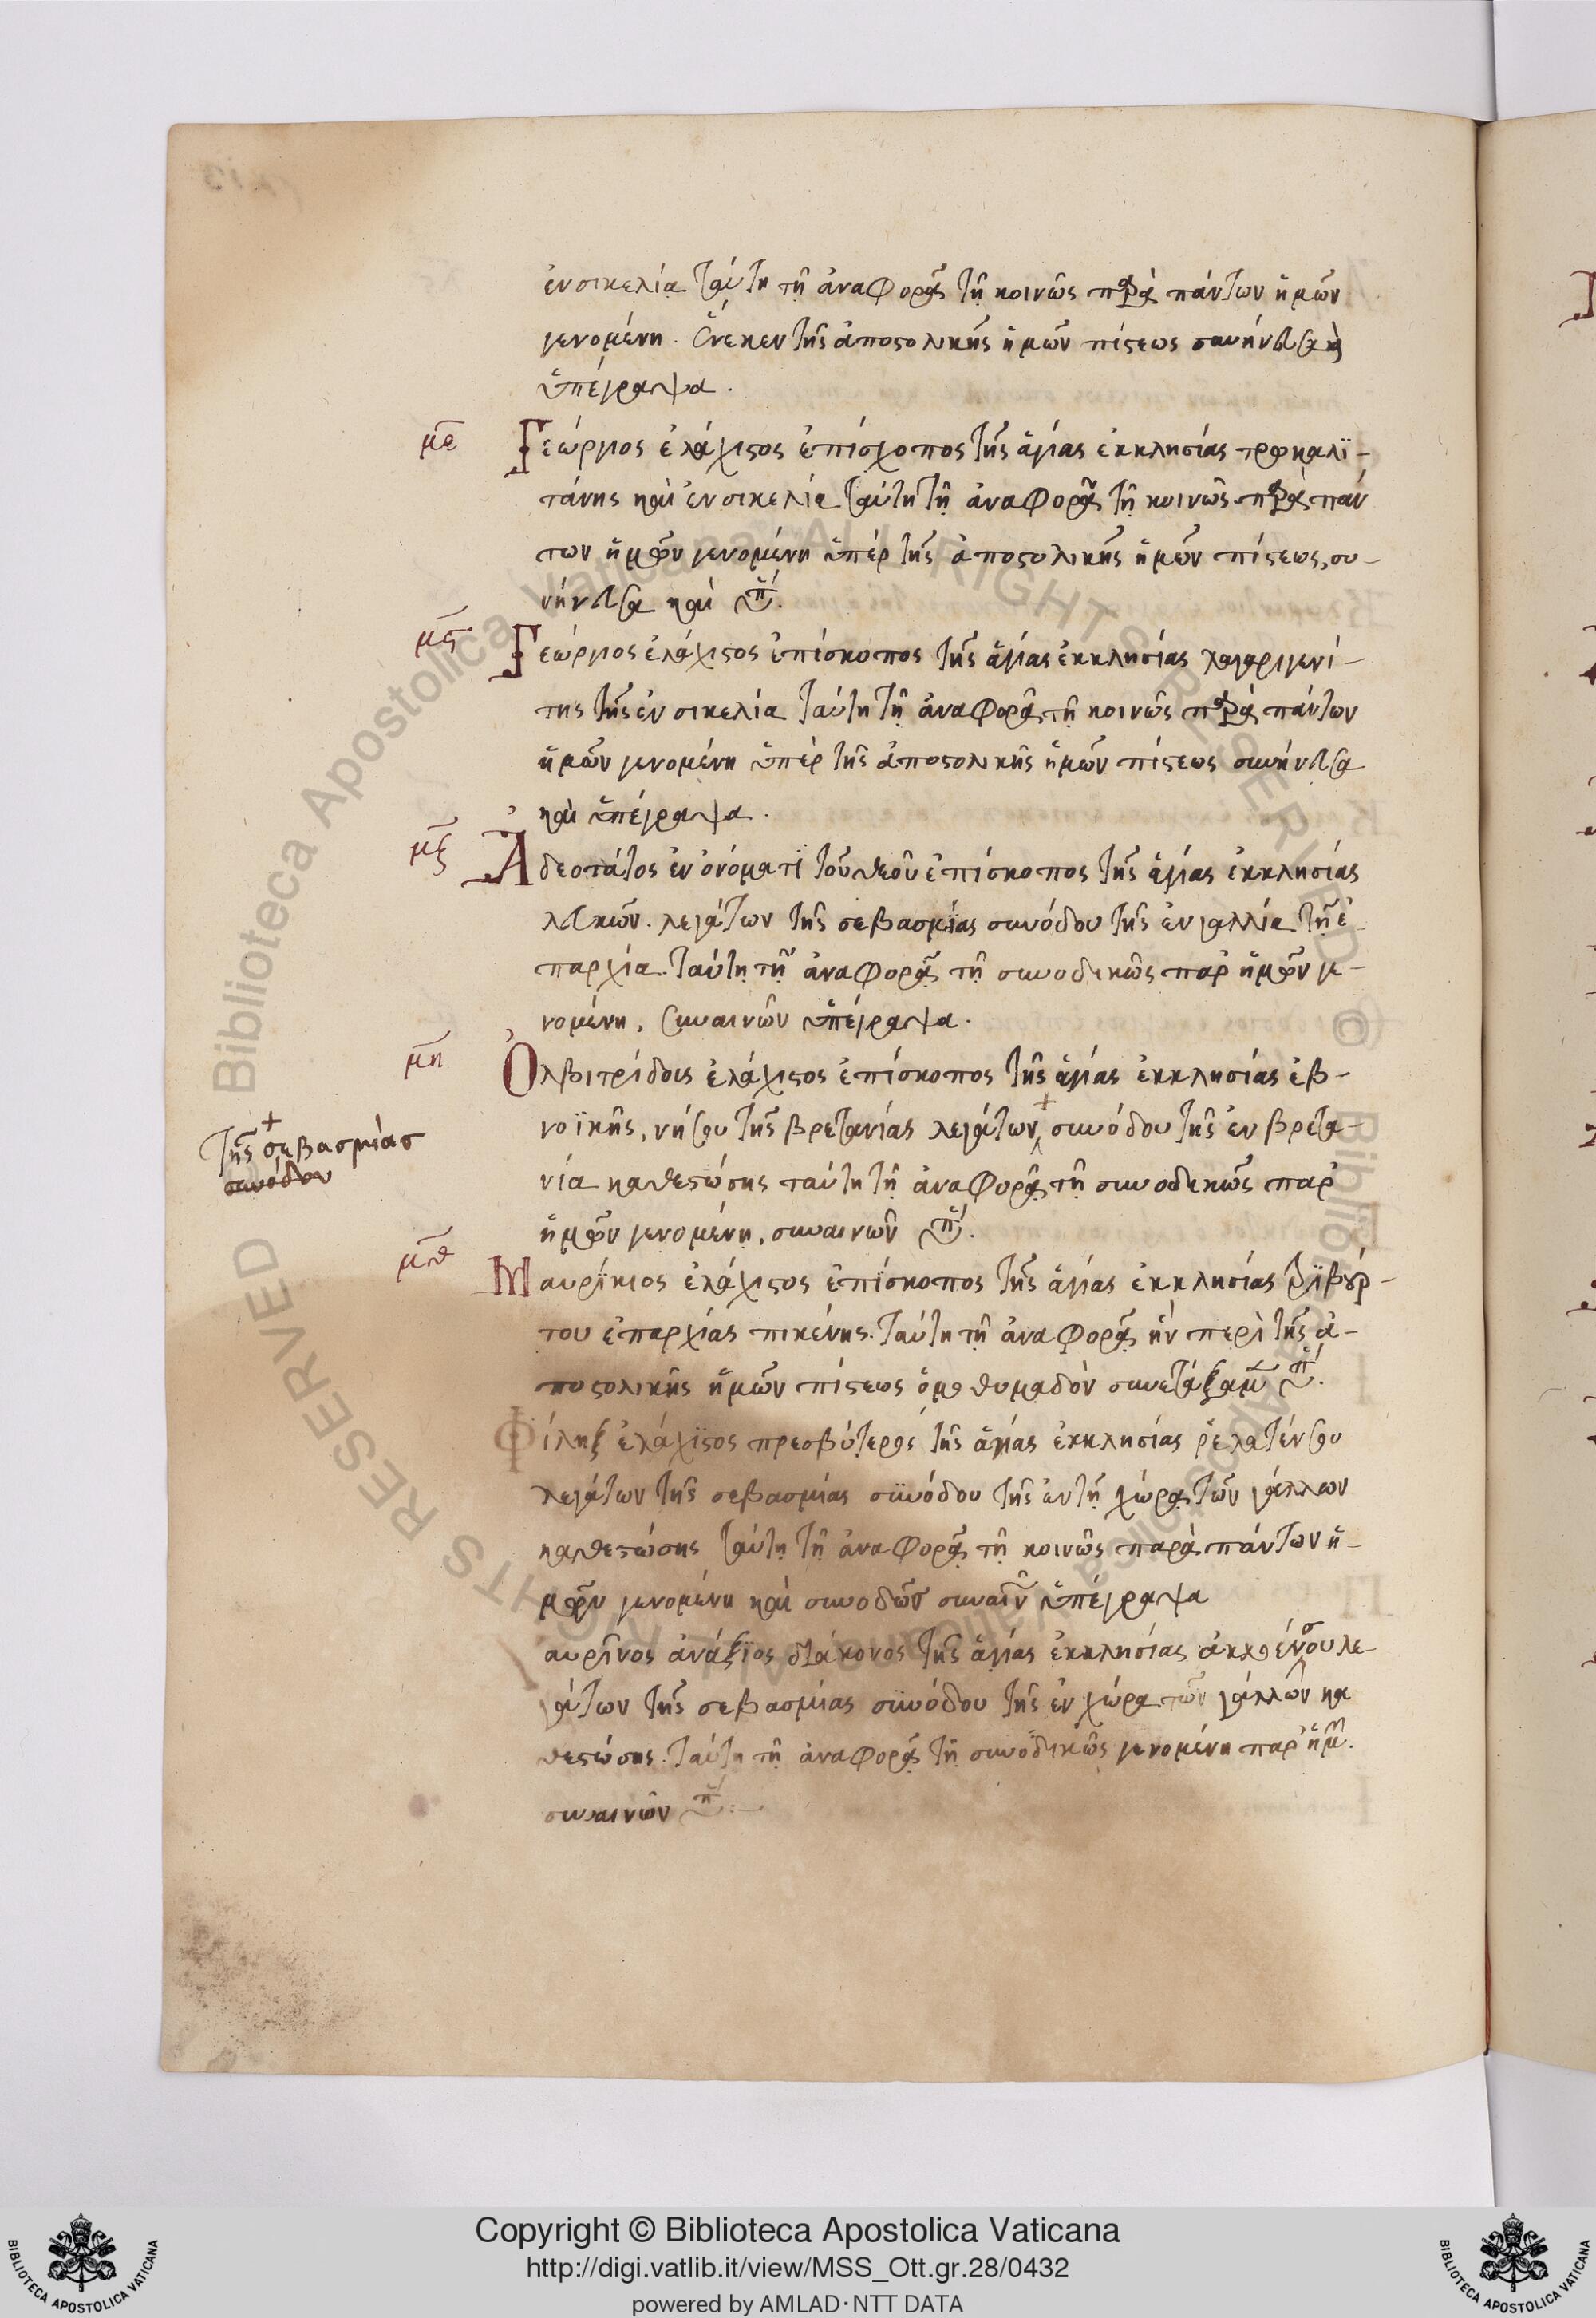 ἐν σικελία ταύτη τῆ ἀναφορᾶ τῆ κοινῶς παρὰ πάντων ἡμῶν
γενομένη. ἕνεκεν τῆς ἀποστολικῆς ἡμῶν πίστεως συνήνεσα καὶ
ὑπέγραψα.
με Γεώργιος ἐλάχιστος ἐπίσκοπος τῆς ἁγίας ἐκκλησίας τροκαλϊ-
τάνης καὶ ἐν σικελία ταύτη τῆ ἀναφορᾶ τῆ κοινῶς παρὰ πάν
των ἡμῶν γενομένη ὑπὲρ τῆς ἀποστολικῆς ἡμῶν πίστεως, συ-
νήνεσα καὶ ὑπ.
μς Γεώργιος ἐλάχιστος ἐπίσκοπος τῆς ἁγίας ἐκκλησίας
της τῆς ἐν σικελία ταύτη τῆ ἀναφορᾶ τῆ κοινῶς παρὰ πάντων
ἡμῶν γενομένη ὑπὲρ τῆς ἀποστολικῆς ἡμῶν πίστεως συνήνεσα
καὶ ὑπέγραψα.
μζ Ἀδεοτάτος ἐν ὀνόματϊ τοῦ θεοῦ ἐπίσκοπος τῆς ἁγίας ἐκκλησίας
λευκῶν. λεγάτων τῆς σεβασμίας συνόδου τῆς ἐν γαλλία τῆ ἐ-
παρχία. ταύτη τῆ ἀναφορᾶ τῆ συνοδικῶς παρ ἡμῶν γε-
νομένη, συναινῶν ὑπέγραψα.
μη Ὀλβιτρίδοις ἐλάχιστος ἐπίσκοπος τῆς ἁγίας ἐκκλησίας ἐβ-
νοϊκῆς, νήσου τῆς βρετανίας λεγάτων + συνόδου τῆς ἐν βρετα-
+ τῆς σεβασμίασ
συνόδου
νία καθεστώσης ταύτη τῆ ἀναφορᾶ τῆ συνοδικῶς παρ
ἡμῶν γενομένη, συναινῶν ὑπ.
μθ Μαυρίκιος ἐλάχιστος ἐπίσκοπος τῆς ἁγίας ἐκκλησίας τϊβούρ-
του ἐπαρχίας πικένης. ταύτη τῆ ἀναφορᾶ ἣν περὶ τῆς ἀ-
ποστολικῆς ἡμῶν πίστεως ὁμοθυμαδὸν συνετάξαμ ὑπ.
Φίληξ ἐλάχϊστος πρεσβύτερος τῆς ἁγίας ἐκκλησίας ῥελατένσου
λεγάτων τῆς σεβασμίας συνόδου τῆς ἐν τῆ χώρα τῶν γάλλων
καθεστώσης ταύτη τῆ ἀναφορᾶ τῆ κοινῶς παρὰ πάντων ἡ-
μῶν γενομένη καὶ συναιν ὑπέγραψα
αυρῖνος ἀνάξϊος διάκονος τῆς ἁγίας ἐκκλησίας λε-
γάτων τῆς σεβασμίας συνόδου τῆς ἐν χώρα τῶν γάλλων κα
θεστώσης. ταύτη τῆ ἀναφορᾶ τῆ συνοδικῶς γενομένη παρ ἡμ.
συναινῶν ὑπ.
Copyright © Biblioteca Apostolica Vaticana
http://digi.vatlib.it/view/MSS_Ott.gr.28/0432
powered by AMLAD·NTT DATA